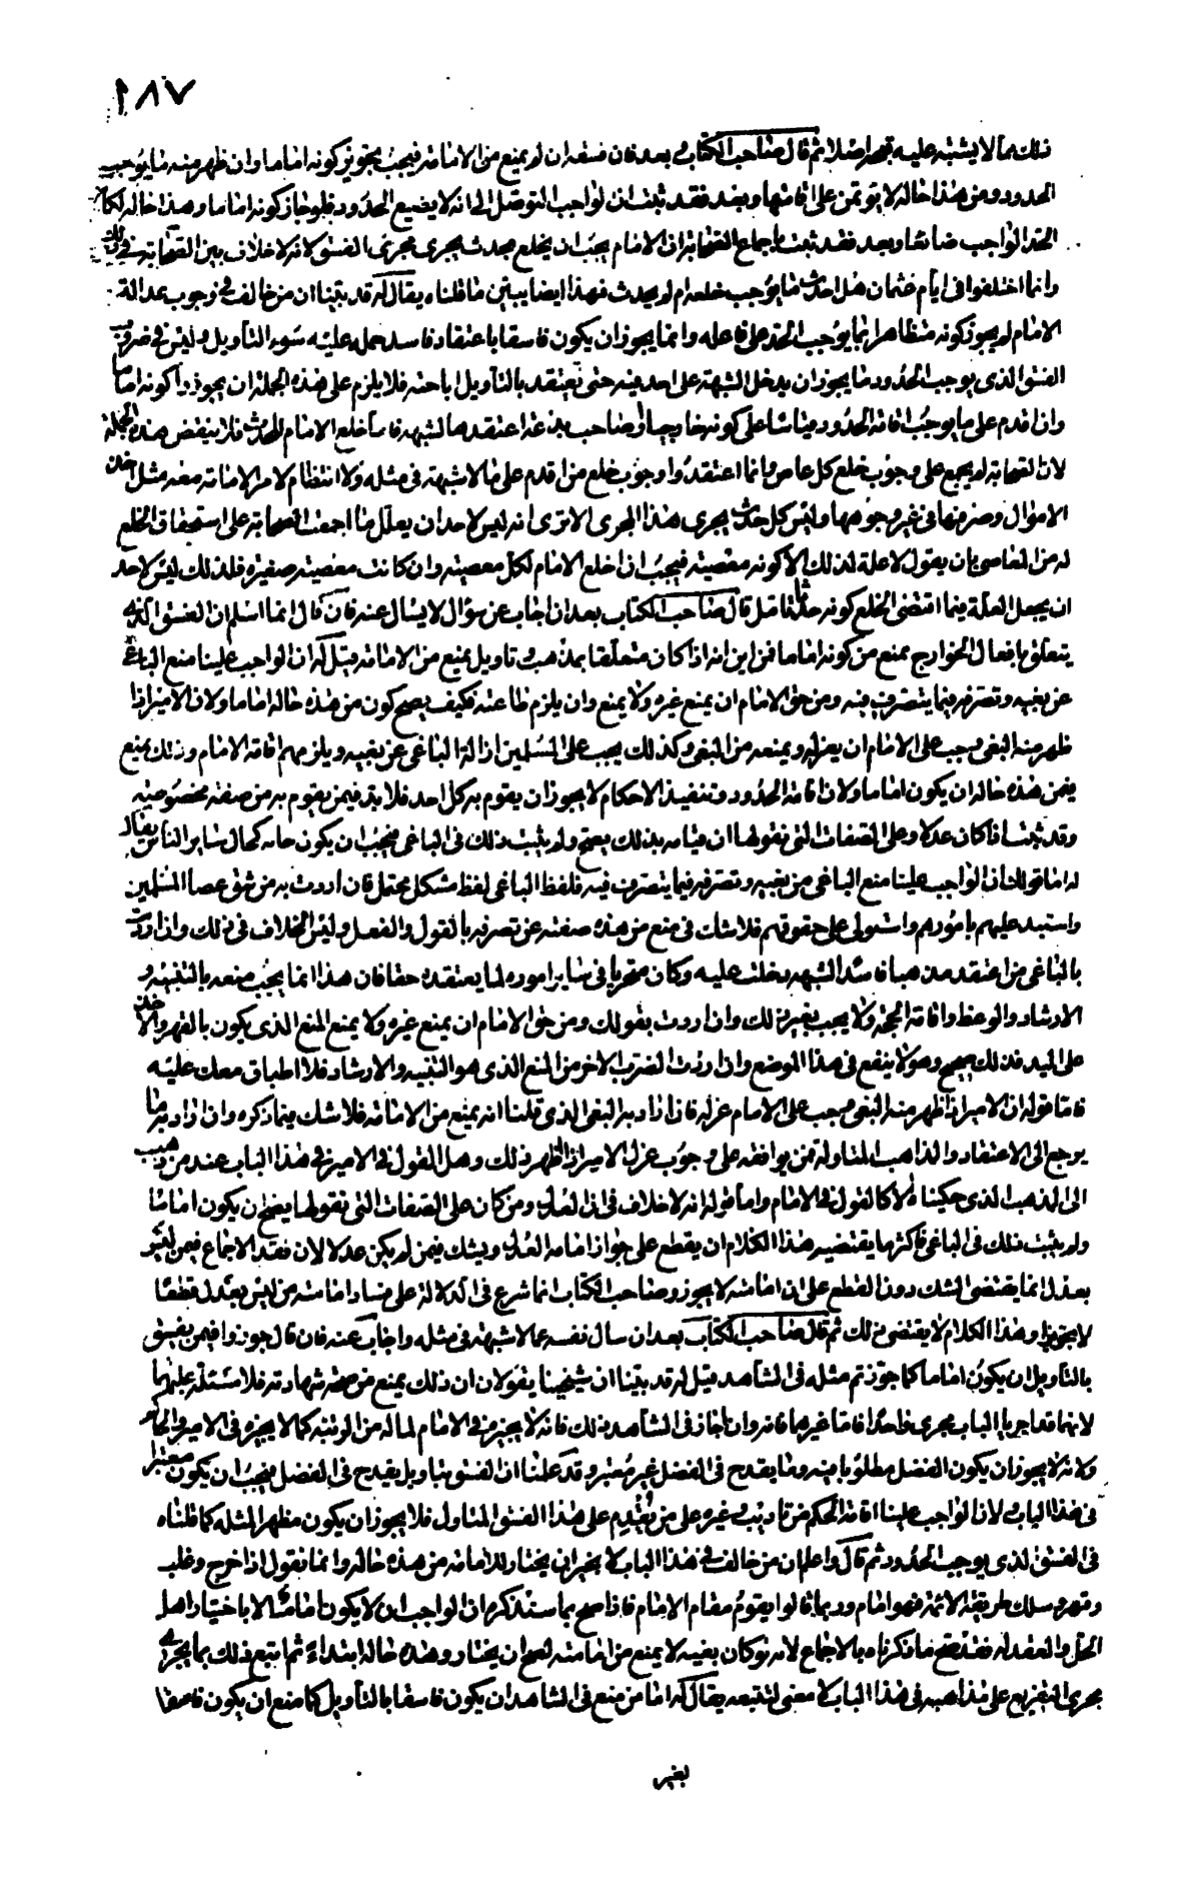 ١٨٧
ذلك مما لا يشتبه عليه قبحه اصلا ثم قال صاحب الكتاب بعد فان فسقه ان لم يمنع من الامامة فيجب تجويز كونه اماما وان ظهر منه ما يوجب
الحدود ومن هذا حاله لا يؤتمن على اقامتها وبعد فقد ثبت ان الواجب التوصل الى انه لا يضيع الحدود فلو جاز كونه اماما وهذا حاله لكان
الحد الواجب ضائعا وبعد فقد ثبت باجماع الصحابة ان الامام يجب ان يخلع بحدث يجرى مجرى الفسق لانه لا خلاف بين الصحابة في ذلك
وانما اختلفوا فى ايام عثمان هل احدث ما يوجب خلعه ام لم يحدث فهذا ايضا يبين ما قلناه يقال له قد بينا ان من خالف في وجوب عدالة
الامام لم يجوز كونه متظاهرا بما يوجب الحد على فاعله وانما يجوز ان يكون فاسقا باعتقاد فاسد حمله عليه سوء التأويل وليس في ضروب
الفسق الذى يوجب الحدود ما يجوز ان يدخل الشبهة على احد فيه حتى يعتقد بالتأويل اباحته فلا يلزم على هذه الجملة ان يجوز كونه اماما
وان قدم على ما يوجب اقامة الحدود قياسا على كونه خارجيا او صاحب بدعة اعتقدها لشبهة فاما خلع الامام للحدث فلا ينقض هذه الجملة
لان الصحابة لم يجمع على وجوب خلع كل عاص وانما اعتقدوا وجوب خلع من اقدم على ما لا شبهة في مثله ولا انتظام لامر الامامة معه مثل اخذ
الاموال وصرفها في غير وجوهها وليس كل حدث يجرى هذا المجرى الا ترى انه ليس لاحد ان يعلل ما اجمعت الصحابة على استحقاق الخلع
له من المعاصى بان يقول لا علة لذلك الا كونه معصية فيجب اذا خلع الامام لكل معصية وان كانت معصيته صغيرة فلذلك ليس لاحد
ان يجعل العلة فيما اقتضى الخلع كونه حدثا قال صاحب الكتاب بعد ان اجاب عن سؤال لا يسال عنه فان قال انما اسلم ان الفسق الذى
يتعلق بافعال الخوارج يمنع من كونه اماما فمن اين انه اذا كان متعلقا بمذهب وتاويل يمنع من الامامة قيل له ان الواجب علينا منع الباغى
عن بغيه وتصرفه فيما يتصرف فيه ومن حق الامام ان يمنع غيره ولا يمنع وان يلزم طاعته فكيف يصح كون من هذه حاله اماما ولان الامير اذا
ظهر منه البغى وجب على الامام ان يعزله ويمنعه من البغى وكذلك يجب على المسلمين ازالة الباغى عن بغيه ويلزمهم اقامة الامام وذلك يمنع
فيمن هذه حاله ان يكون اماما ولان اقامة الحدود وتنفيذ الاحكام لا يجوز ان يقوم به كل احد فلا بد فيمن يقوم به من صفة مخصوصة
وقد ثبت اذا كان عدلا وعلى الصفات التى نقولها ان قيامه بذلك يصح ولم يثبت ذلك فى الباغى فيجب ان يكون حاله كحال ساير الناس يقال
له اما قولك ان الواجب علينا منع الباغى من بغيه وتصرفه فيما يتصرف فيه فلفظ الباغى لفظ مشكل محتمل فان اردت به من شق عصا المسلمين
واستبد عليهم بامورهم واستولى على حقوقهم فلا شك فى منع من هذه صفته عن تصرفه بالقول والفعل وليس الخلاف فى ذلك واذا اردت
بالباغى من اعتقد مذهبا فاسدا لشبهة دخلت عليه وكان متحريا فى ساير اموره لما يعتقده حقا فان هذا انما يجب منعه بالتنبيه و
الارشاد والوعظ واقامة الحجة ولا يجب بغير ذلك وان اردت بقولك ومن حق الامام ان يمنع غيره ولا يمنع المنع الذى يكون بالقهر والاخذ
على اليد فذلك صحيح وهو لا ينفع فى هذا الموضع وان اردت الضرب الاخر من المنع الذى هو التنبيه والارشاد فلا اطباق معك عليه
فاما قوله ان الامير اذا ظهر منه البغى وجب على الامام عزله فاذا اراد به البغى الذى قلنا انه يمنع من الامامة فلا شك فيما ذكره وان اراد به ما
يرجع الى الاعتقاد والمذاهب المتاولة فمن يوافقه على وجوب عزل الامير اذا ظهر ذلك وهل القول في الامير في هذا الباب عند من ذهب
الى المذهب الذى حكيناه الا كالقول في الامام واما قوله انه لا خلاف فى ان العدل ومن كان على الصفات التى نقولها يصح ان يكون اماما
ولم يثبت ذلك فى الباغى فاكثر ما يقتضيه هذا الكلام ان يقطع على جواز امامة العدل ويشك فيمن لم يكن عدلا لان فقد الاجماع فيمن ليس
بعدل انما يقتضى الشك دون القطع على ان امامته لا يجوز وصاحب الكتاب انما شرع فى الدلالة على فساد امامة من ليس بعدل قطعا
لا تجويزا وهذا الكلام لا يقتضى ذلك ثم قال صاحب الكتاب بعد ان سال نفسه عما لا شبهة فى مثله واجاب عنه فان قال جوزوا فيمن يفسق
بالتأويل ان يكون اماما كما جوزتم مثله فى الشاهد قيل له قد بينا ان شيخينا يقولان ان ذلك يمنع من صحة شهادته فلا مسئلة عليهما
لانهما قد اجريا الباب مجرى واحدا فاما غيرهما فانه وان اجاز فى الشاهد ذلك فانه لا يجيزه في الامام لما له من الرتبة كما لا يجيزه فى الامير والحاكم
ولانه لا يجوز ان يكون الفضل مطلوبا فيه وما يقدح فى الفضل غير معتبر وقد علمنا ان الفسق بتاويل يقدح فى الفضل فيجب ان يكون معتبرا
فى هذا الباب ولان الواجب علينا اقامة الحكم من تاديب وغيره على من يقدم على هذا الفسق المتاول فلا يجوز ان يكون مظهرا لمثله كما قلناه
فى الفسق الذى يوجب الحدود ثم قال واعلم ان من خالف في هذا الباب لا يخبر ان يختار للامامة من هذه حاله وانما نقول اذا خرج وغلب
وقهر وسلك طريقة الائمة فهو امام وربما قالوا يقوم مقام الامام فاذا صح بما سنذكره ان الواجب ان لا يكون اماما الا باختيار اهل
الحل والعقد له فقد صح ما ذكرناه بالاجماع لانه لو كان بغيه لا يمنع من امامته لصح ان يختار وهذه حاله ابتداء ثم اتبع ذلك بما يجرى
مجرى التفريع على مذاهبه فى هذا الباب لا معنى لتتبعه يقال له اما من منع فى الشاهد ان يكون فاسقا بالتأويل كما منع ان يكون فاسقا
بغير